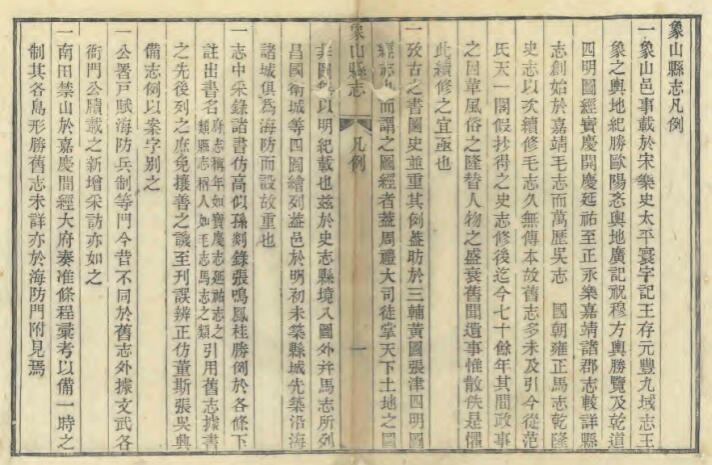 象山縣志凡例
一象山邑事載於宋樂史太平寰宇記王存元豐九域志王
象之輿地紀勝歐陽忞輿地廣記祝穆方輿勝覽及乾道
四明圖經寶慶開慶延祐至正永樂嘉靖諸郡志較詳縣
志創始於嘉靖毛志而萬歷吳志 國朝雍正馬志乾隆
史志以次續修毛志久無傳本故舊志多未及引今從范
氏天一閣假抄得之史志修後迄今七十餘年其間政事
之因革風俗之隆替人物之盛衰舊聞遺事惟散佚是懼
此續修之宜亟也
一攷古之書圖史並重其例葢昉於三輔黃圖張津四明圖
經志也而謂之圖經者葢周禮大司徒掌天下土地之圖
象山縣志
凡例
一
非圖無以明紀載也茲於史志縣境入圖外幷馬志所列
昌國衛城等四圖繪列葢邑於明初未築縣城先築沿海
諸城俱爲海防而設故重也
一志中采錄諸書仿高似孫剡錄張鳴鳳桂勝例於各條下
註出書名府志稱年如寶慶志延祐志之類縣志稱人如毛志馬志之類引用舊志據書
之先後列之庶免攘善之譏至刊誤辨正仿董斯張吳興
備志例以案字別之
一公署戸賦海防兵制等門今昔不同於舊志外據文武各
衙門公牘載之新增采訪亦如之
一南田禁山於嘉慶間經大府奏准條程彙考以備一時之
制其各島形勝舊志未詳亦於海防門附見焉